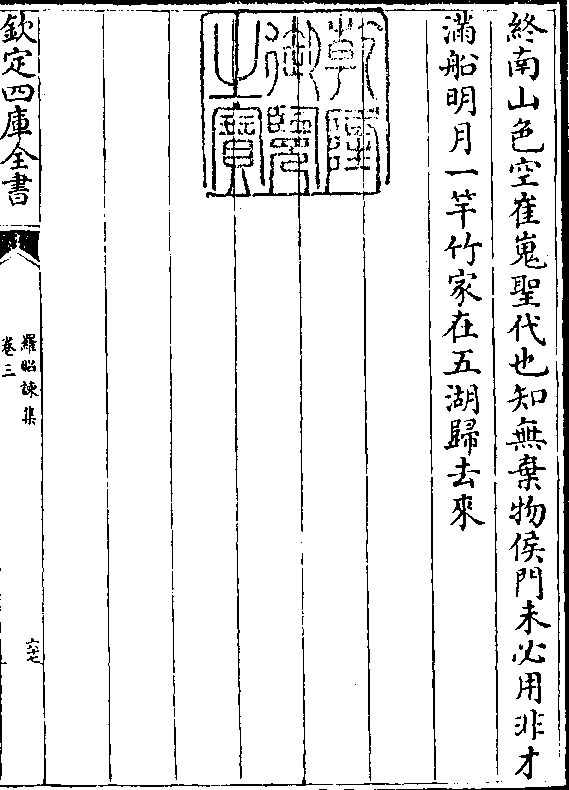 終南山色空崔嵬聖代也知無棄物侯門未必用非才
滿船明月一竿竹家在五湖歸去來
乾隆
御覽
之寶
欽定四庫全書
羅昭諫集
卷三
六十七